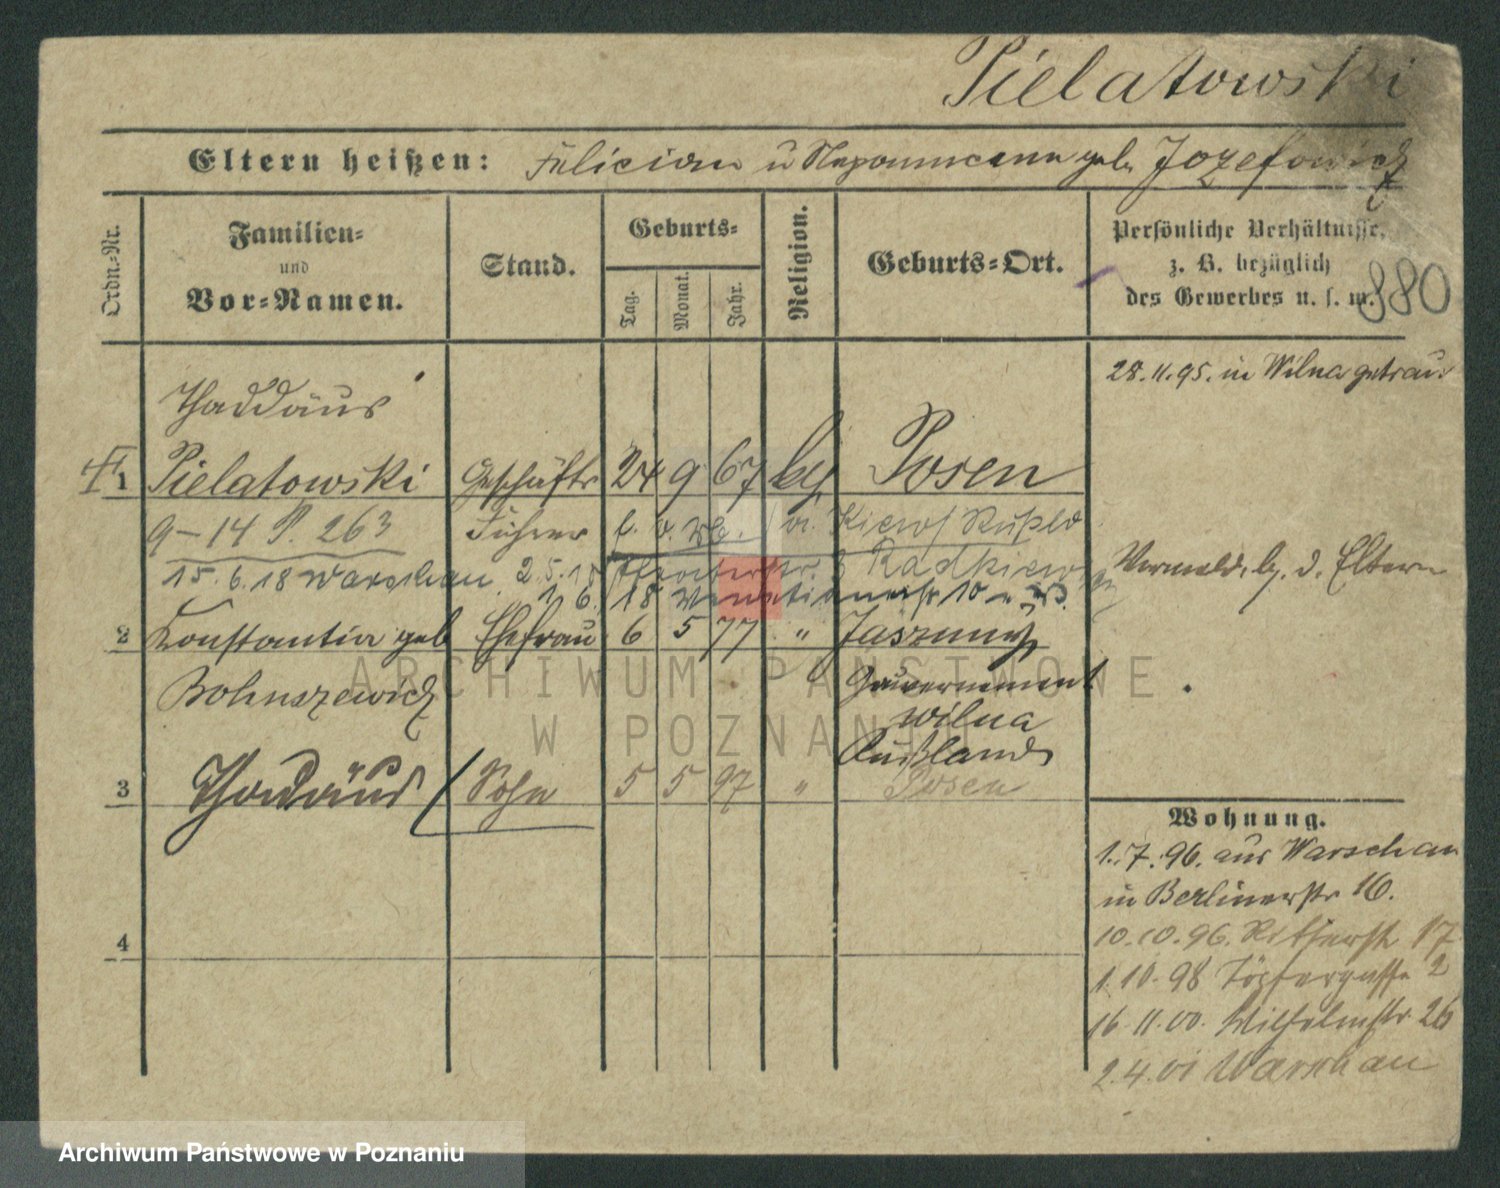 Pielatowski
Eltern heißen: Felician u Nepomucena geb. Jozefowicz
Ordn.-Nr.
Familien-
und
Vor-Namen.
Stand.
Geburts-
Tag.
Monat.
Jahr.
Religion.
Geburts-Ort.
Persönliche Verhältnisse,
z. B. bezüglich
des Gewerbes u. s. w.
880
28.11.95. in Wilna getraut
Thaddäus
1 Pielatowski Geschäfts 24 9 67 Posen
9-14 P. 263 Führer Kiew Rußld
Vermeld. b. d. Eltern
15.6.18 Warschau 2.5.18 Radkiewicz
1 6. 18 10
2 Konstantia geb Ehefrau 6 5 77 "
Bohuszewicz Gouvernement
Wilna
Rußland
3 Thaddäus Sohn 5 5 97 " Posen
4
Wohnung.
1.7.96. aus Warschau
in Berlinerstr 16.
10.10.96. Ritterstr 17
1.10.98 Töpfergasse 2
16.11.00. Wilhelmstr. 26
2.4.01 Warschau
ARCHIWUM PAŃSTWOWE
W POZNANIU
Archiwum Państwowe w Poznaniu